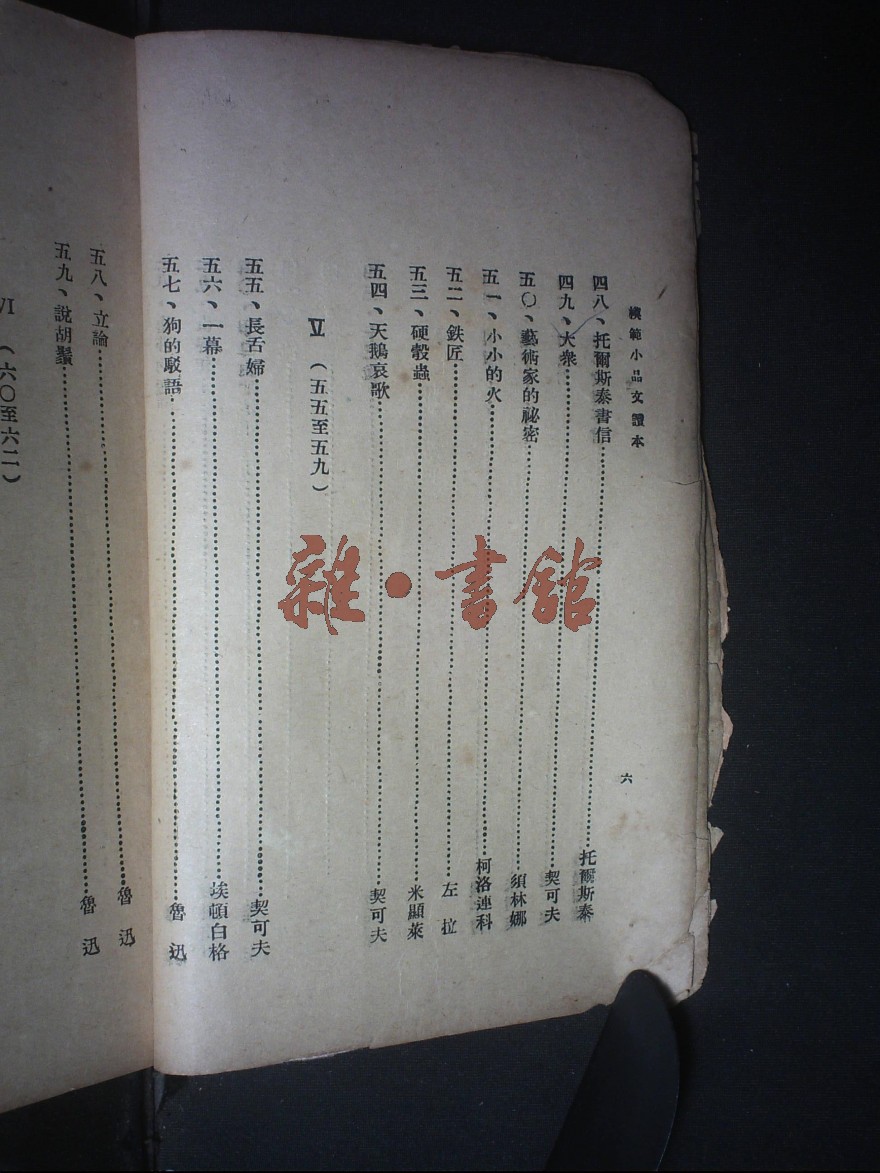 模範小品文讀本
六
四八、托爾斯泰書信 托爾斯泰
四九、大衆 契可夫
五〇、藝術家的祕密 須林娜
五一、小小的火 柯洛連科
五二、鉄匠 左拉
五三、硬殼蟲 米顯萊
五四、天鵝哀歌 契可夫
V （五五至五九）
五五、長舌婦 契可夫
五六、一幕 埃頓白格
五七、狗的駁語 魯迅
五八、立論 魯迅
五九、說胡鬚 魯迅
VI （六〇至六二）
雜·書館